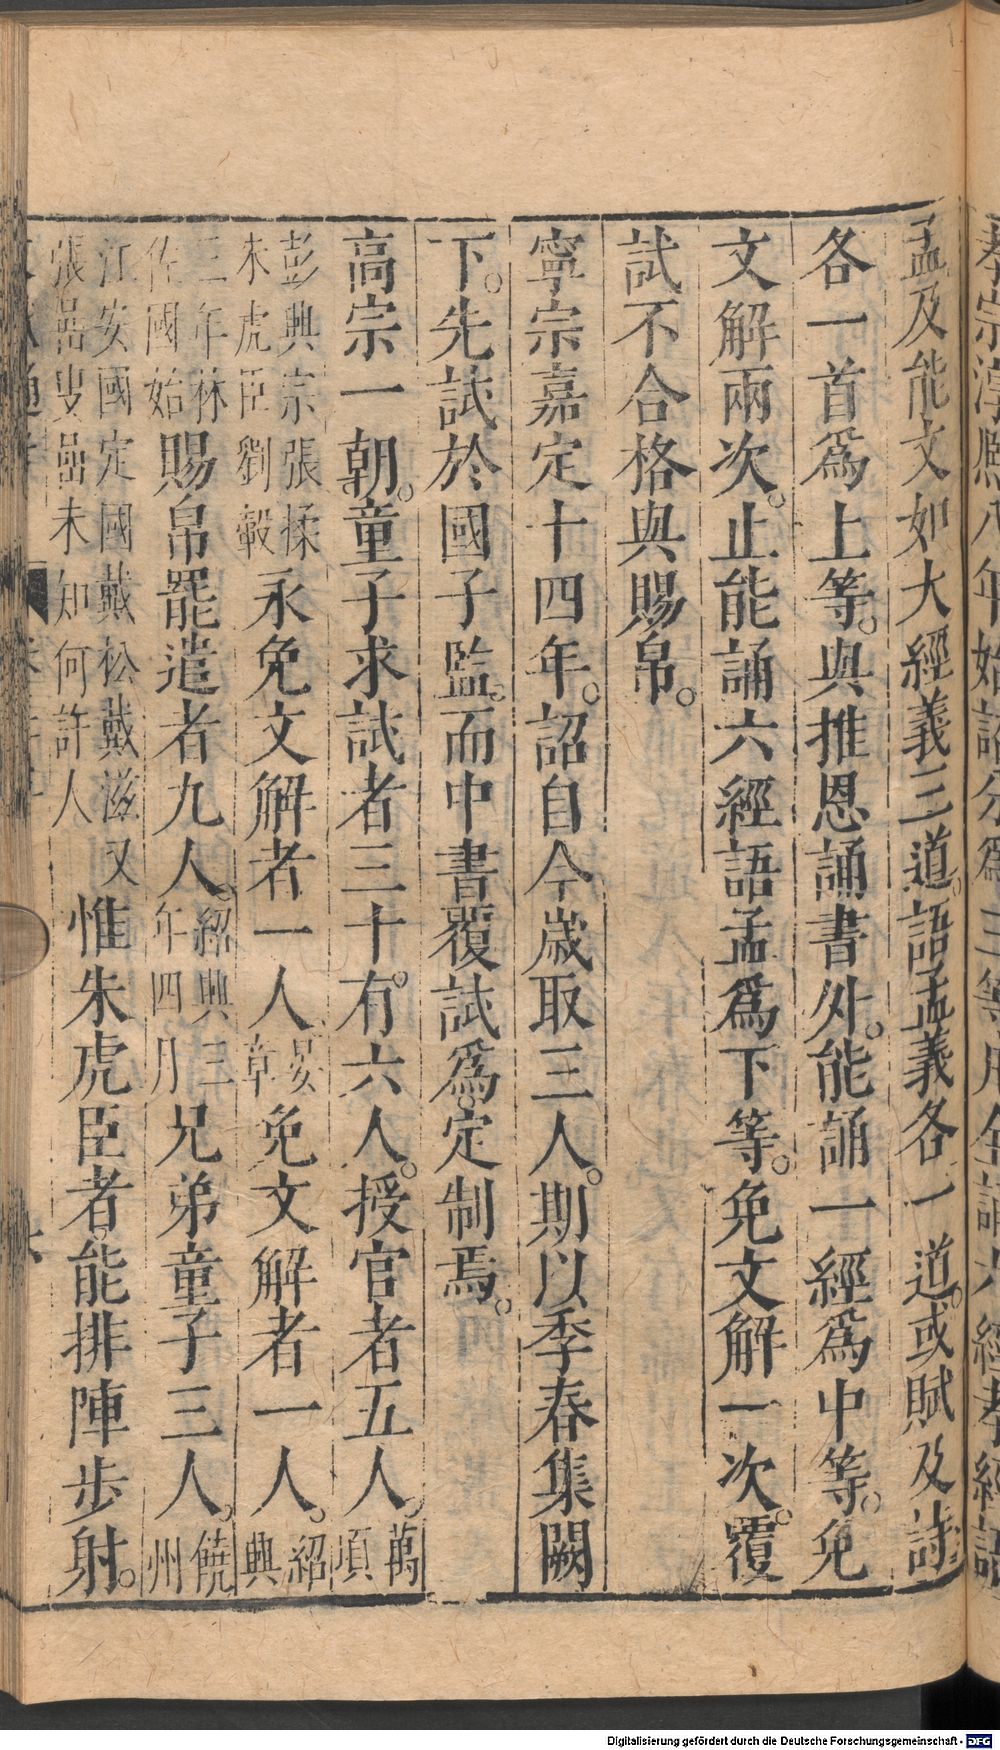 孝宗淳熙八年始詔分爲三等凡全誦六經孝經語
孟及能文如大經義三道。語孟義各一道。或賦及詩
各一首爲上等。與推恩誦書外。能誦一經爲中等。免
文解兩次。止能誦六經語孟爲下等。免文解一次。覆
試不合格與賜帛。
寧宗嘉定十四年。詔自今歲取三人。期以季春集闕
下。先試於國子監。而中書覆試爲。定制焉。
高宗一朝。童子求試者三十。有六人。授官者五人。萬頊
彭興宗張揉朱虎臣劉轂永免文解者一人晏章免文解者一人。紹興
三年林佐國始賜帛罷遣者九人。紹興三年四月兄弟童子三人。饒州
江安國定國戴松戴滋又張嵒叟嵒未知何許人惟朱虎臣者。能排陣步射。
Digitalisierung gefördert durch die Deutsche Forschungsgemeinschaft - DFG